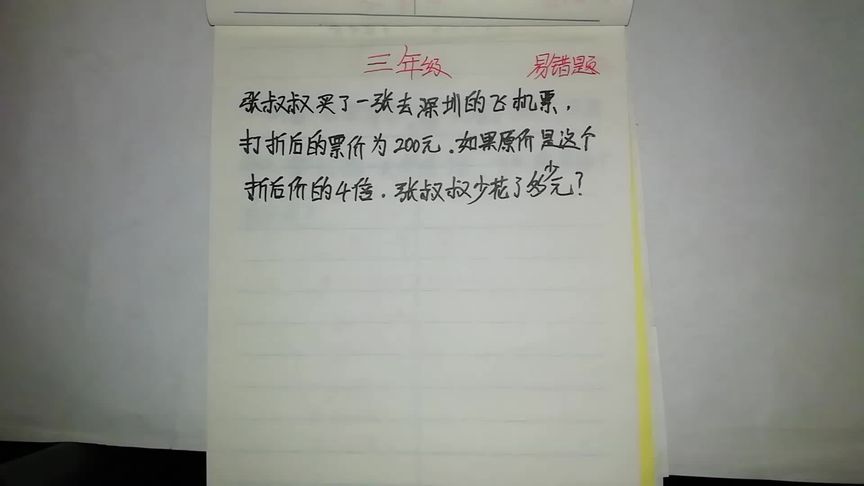 三年级 易错题
张叔叔买了一张去深圳的飞机票,
打折后的票价为200元.如果原价是这个
折后价的4倍.张叔叔少花了多少元?